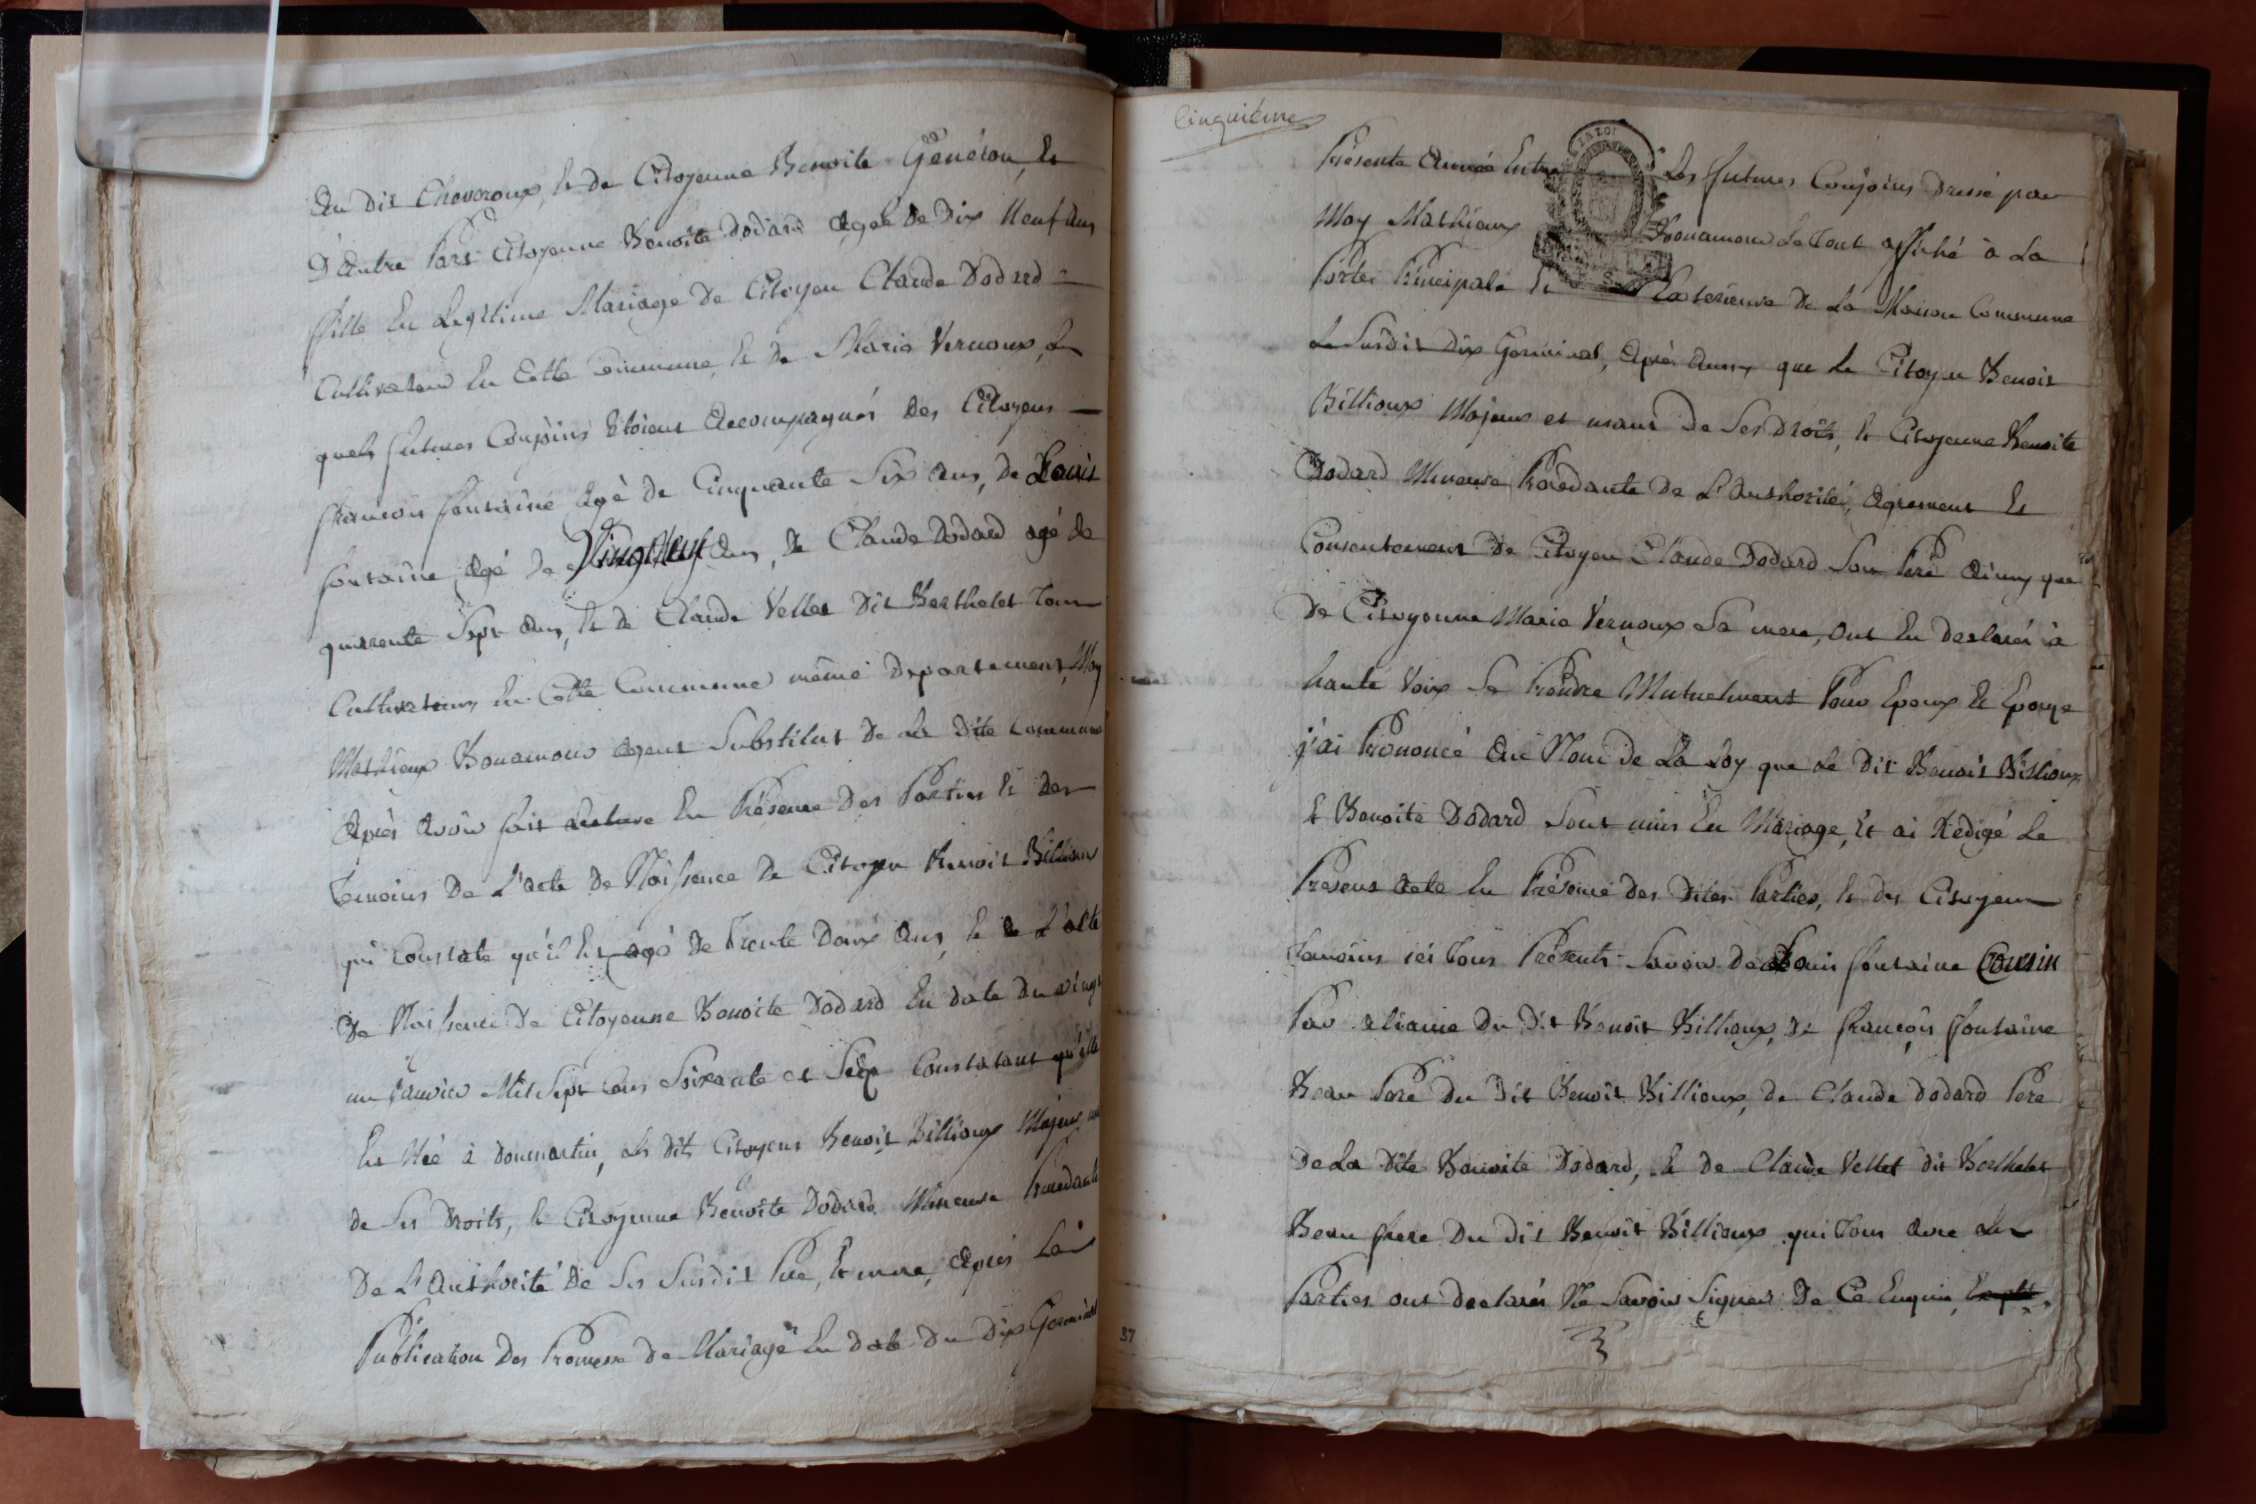 du dit Chaveroux, et de Citoyenne Benoite Genéton, Et
D'autre Part Citoyenne Benoite Dodard agée de Dix Neuf ans
fille En Legitime Mariage de Citoyen Claude Dodard
Cultivateur En Cette Commune, Et de Marie Vernoux, Les
quels futures Conjoins Etoient accompagnés des Citoyens
francois fontaine agé de Cinquante Six ans, de Louis
fontaine, agé de Vingt Neuf ans, de Claude Dodard agé de
quarente Sept ans, Et de Claude Vellet dit Berthelet Tous
Cultivateurs En Cette Commune même Departement, Moy
Mathieux Bonamour agent Substitut de La dite commune
après avoir fait Lecture En Présence des Parties Et des
Temoins de L'acte de Naissence de Citoyen Benoit Billioux
qui Constate qu'il Est agé de Trente Deux ans, Et de L'acte
de Naissence de Citoyenne Benoite Dodard En date du vingt
un Janvier Mil Sept Cens Soixante et Seize Constatant qu'elle
Est Née à dommartin, Les dits Citoyens Benoit Billioux Majeur
de Ses Droits, Et Citoyenne Benoite Dodard Mineure Procedante
De L'authorité de Ses Susdit Pere, Et mere, après La
Publication des Promesse de Mariage En date du Dix Germinal
Cinquième
Présente année Entre Les futures Conjoins Dressé par
Moy Mathieux Bonamour Le Tout affiché à La
Porte Principale Et Exterieure de La Maison Commune
Le Susdit Dix Germinal, après aussy que Le Citoyen Benoit
Billioux Majeur et usant de Ses Droits, Et Citoyenne Benoite
Dodard Mineure Procedante de L'authorité, agrement Et
Consentement de Citoyen Claude Dodard Son Pere ainsy que
de Citoyenne Marie Vernoux Sa mere, ont Eu declarés à
haute Voix Se Prendre Mutuelment Pour Epoux Et Epouse
j'ai Prononcé au Nom de La Loy que Le dit Benoit Billioux
Et Benoite Dodard Sont unis En Mariage, Et ai Redigé Le
Présent acte En Présence des dites Parties, Et des Citoyens
Temoins ici Tous Présents Savoir de Louis fontaine Cousin
Par aliance du dit Benoit Billioux, de françois fontaine
Beau Pere du dit Benoit Billioux, de Claude Dodard Pere
de La dite Benoite Dodard, Et de Claude Vellet dit Berthelet
Beau frere du dit Benoit Billioux qui Tous avec Les
Parties ont declarés Ne Savoir Signer de Ce Enquis
37